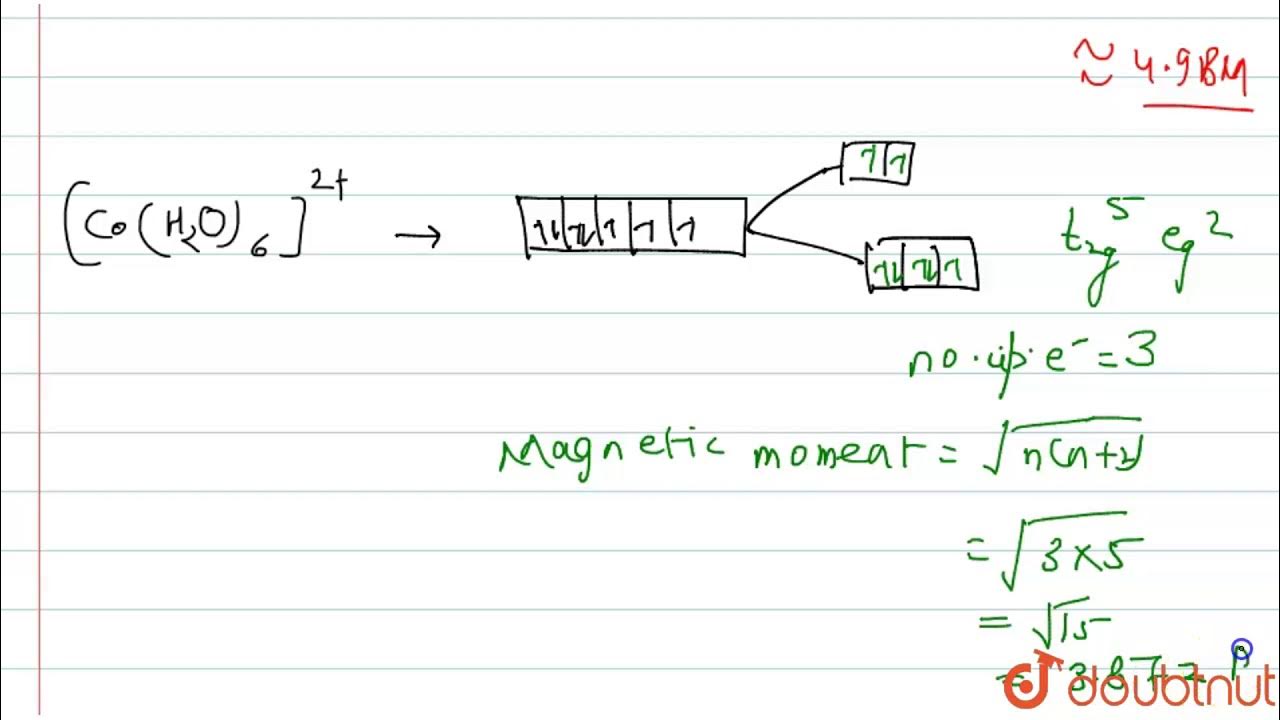 ≈ 4.9BM
[Co(H₂O)₆]²⁺ → t₂g⁵ eg²
no. up. e⁻ = 3
Magnetic moment = √n(n+2)
= √3×5
= √15
= 3.872
doubtnut